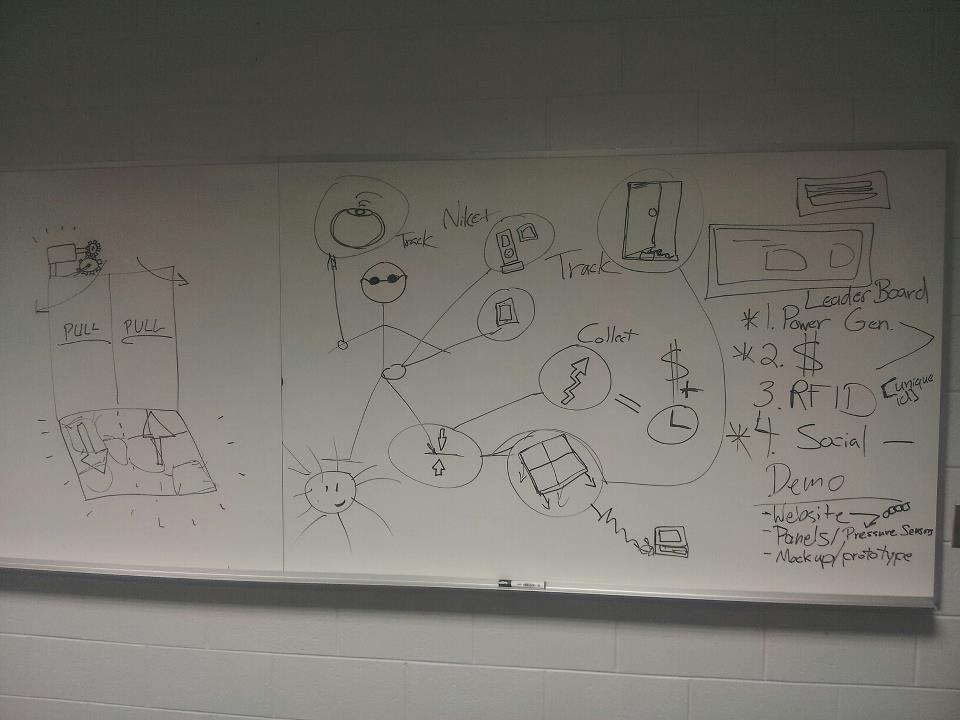 PULL PULL
Track
Nike+
Track
Collect
$
+
=
Leader Board
* 1. Power Gen.
* 2. $
3. RFID [unique ids
* 4. Social —
Demo
- Website
- Panels/Pressure Sensors
- Mockup/prototype